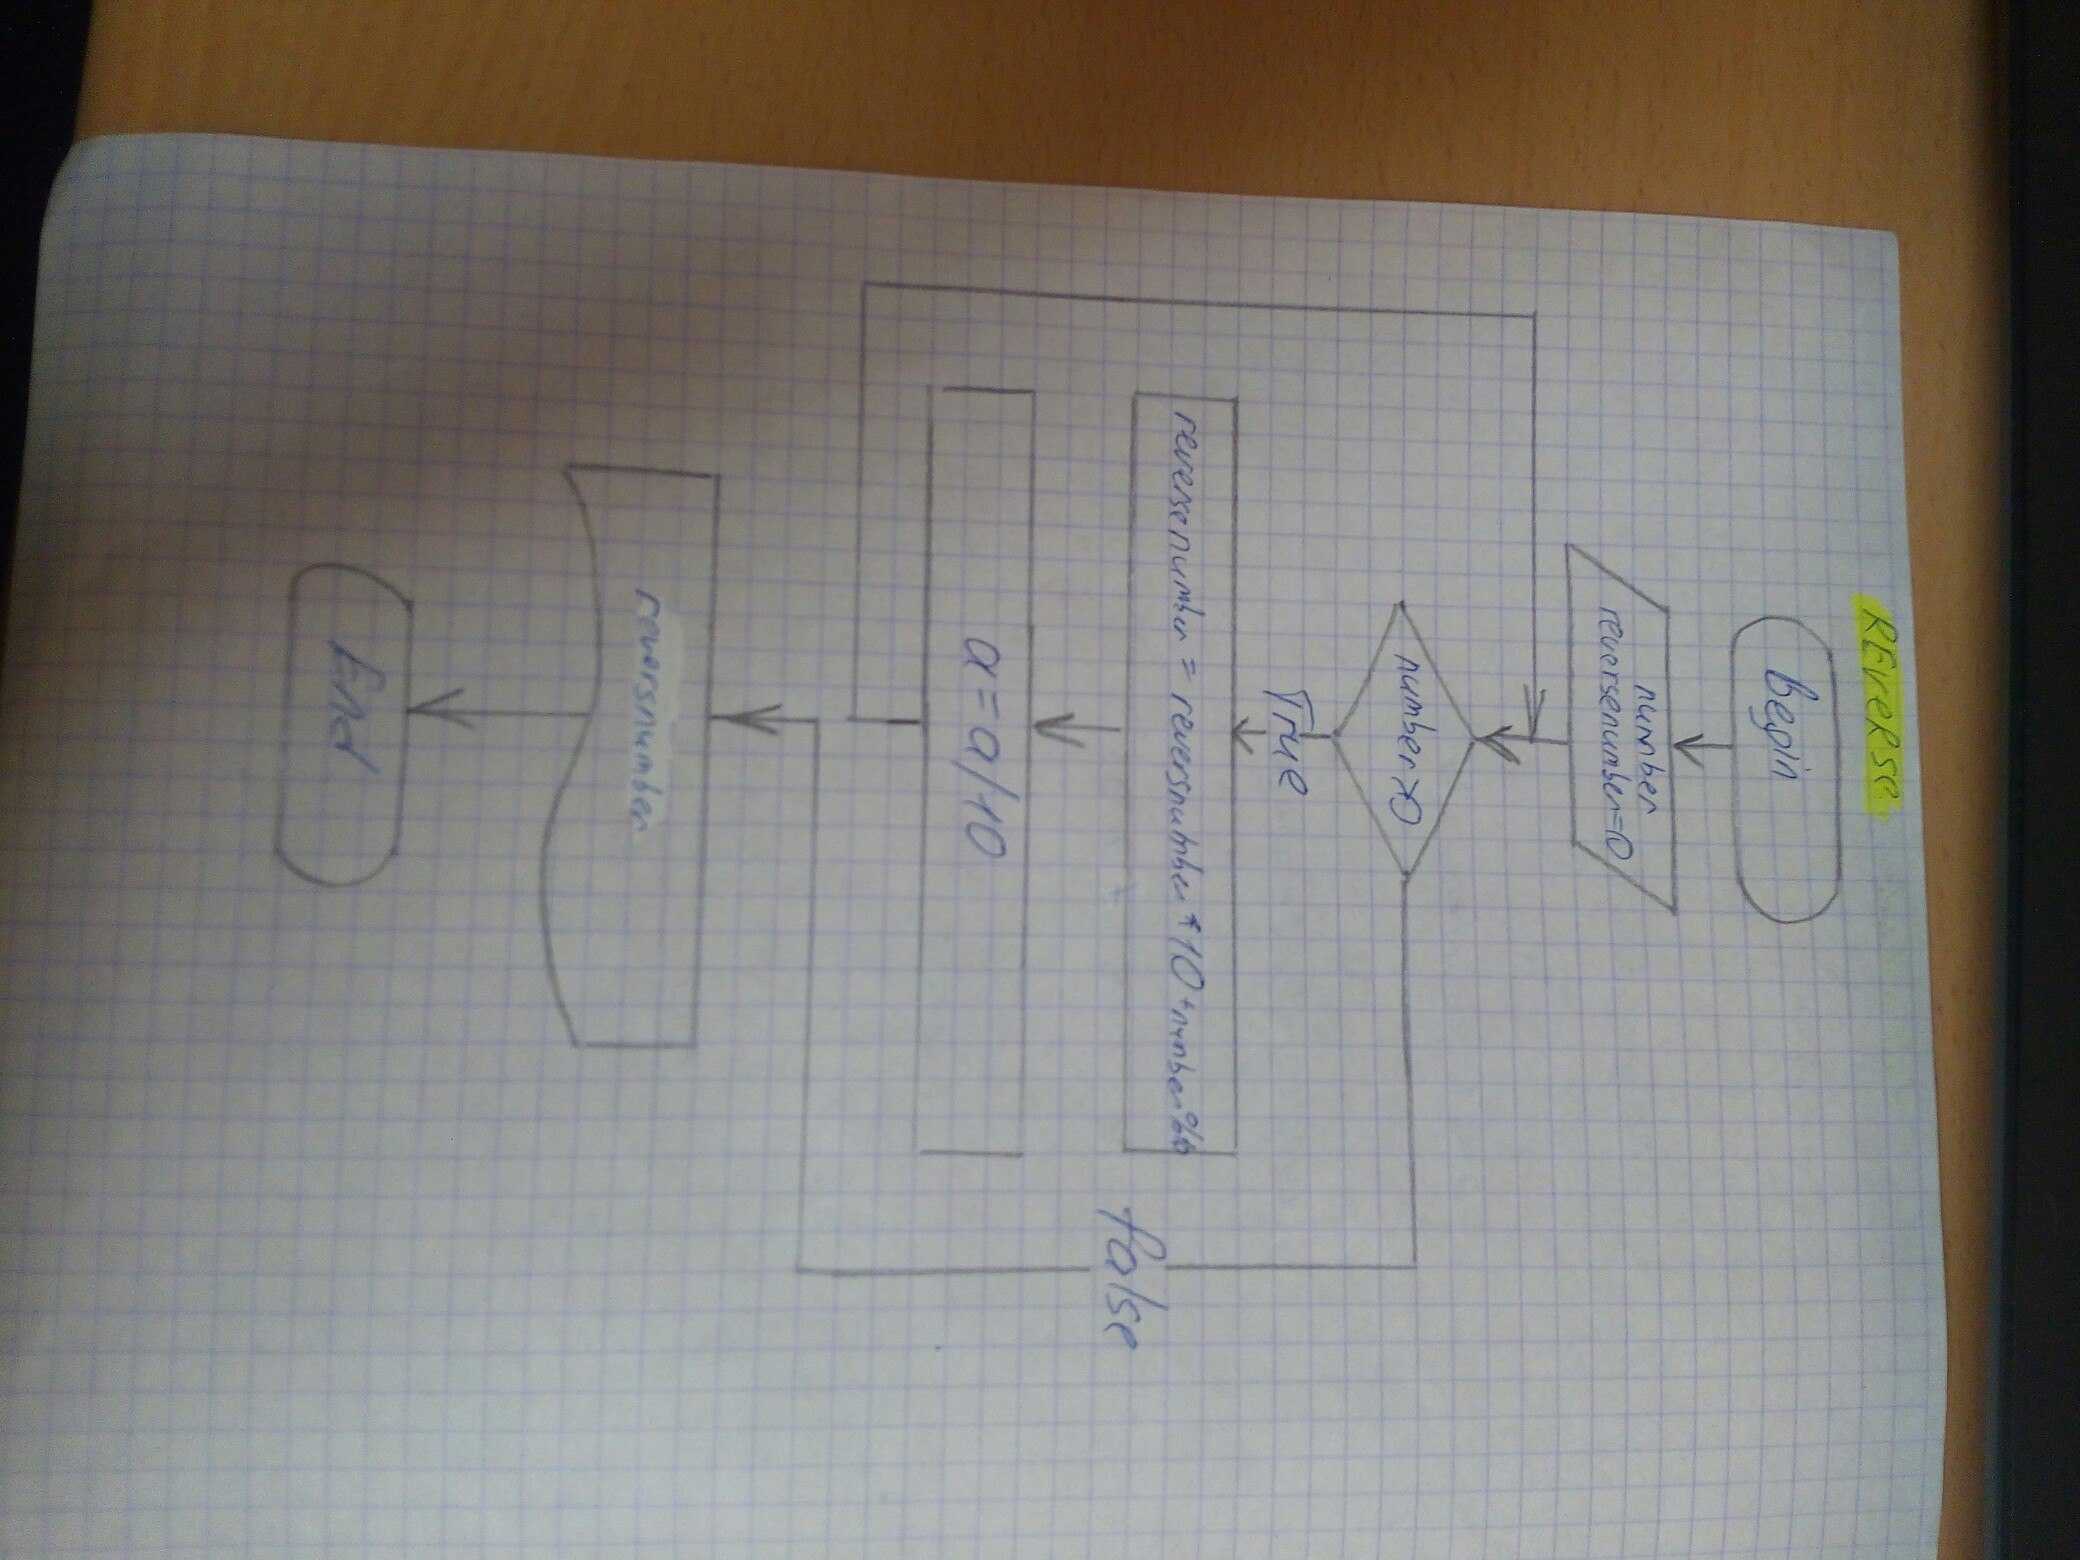 REVeRSe
Begin
number
reversenumber=0
number>0
True
reversenumber = reversnumber*10+number%10
false
a=a/10
reversnumber
End